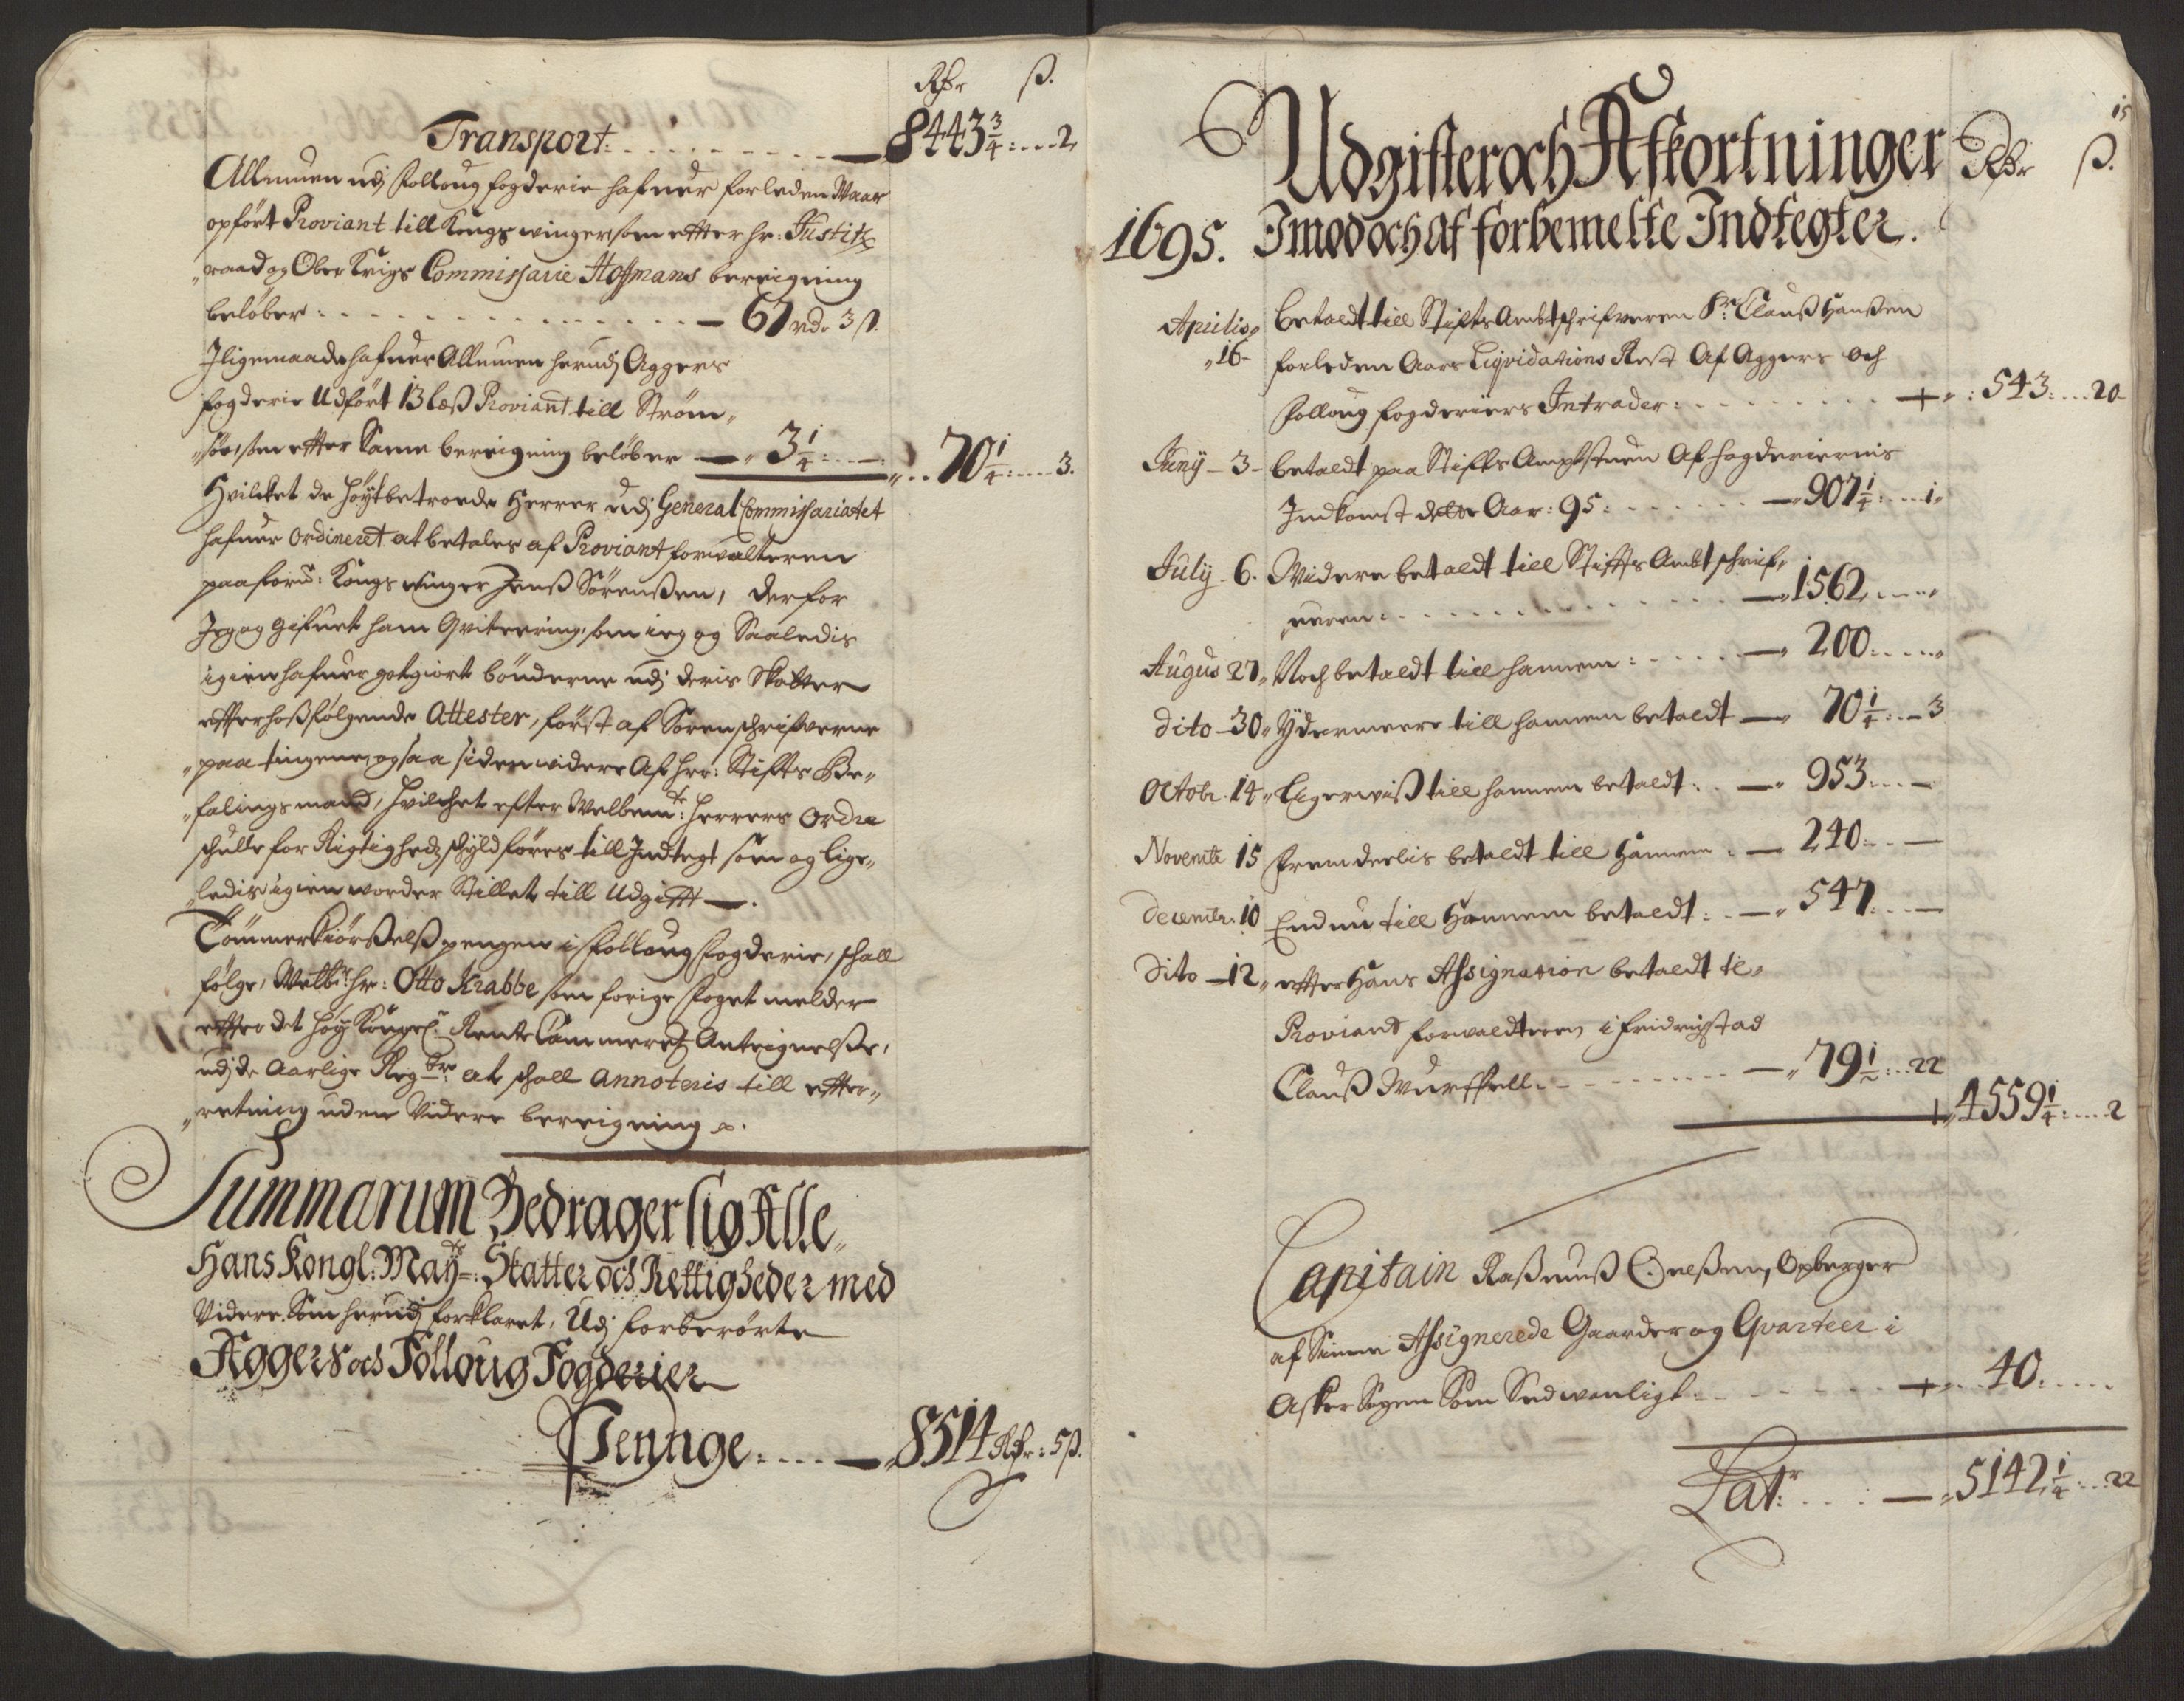 Rdr ß.
Transport: . . . . . . . . . . — 8443 3/4: . . . 2
Allmuen udj Folloug fogderie hafuer forleden Waar
opført Proviant till Kongswinger som effter hr: Justitz
raad og Ober Krigs Commissarie Hofmans bereigning
beløber: . . . . . . . . . . — 67 rd. 3 ß.
Jligemaade hafuer Allmuen herudj Aggers
fogderie Udført 13 læß Proviant till Strøm„
„søe, som effter Samme bereigning beløber — „ 3 1/4: . . —: „ . . 70 1/4: . . . 3.
Hvilcket de høÿtbetroede Herrer udj General Commissariatet
hafuer ordineret at betales af Proviantforvalteren
paa for: Kongswinger Jenß Sørenßen, derfor
Jeg og gifuet ham Qvitering, som ieg og Saaledis
igien hafuer godgiort bønderne udj deris Skatter
effter hoßfølgende Attester, først af Sorenschrifverne
„paa tingene, og saa siden widere Af hr: Stiffts Be„
„falingsmand, hvilchet efter Welbemte: Herrers Ordre
schulle for Rigtigheds schyld føres till Indtegt som og lige„
„ledis igien worder Stillet till Udgifft —.
Tømmerkiørßelß pengene i Folloug Fogderie, schall
følge, Welbr: hr: Otto Krabbe som forige Foget melder
effter det høÿ Kongel: Rente Cammers Antegnelße,
udj de Aarlige Regsk: at schall annoteris till effter„
„retning uden Videre bereigning.
Summarum Bedrager sig Alle„
Hans Kongl: Maÿts: Skatter och Rettigheder med
Videre. Som herudj forklaret, Udj forberørte
Aggers och Folloug Fogderier
Pennge: . . . . — „8514 Rdr: 5 ß.
15
Udgifter och Afkortninger Rdr ß.
1695. Imod och af forbemelte Indtegter.
Aprilis „ betaldt till Stiffts Ambtschrifveren Sr: Clauß Hanßen
„16- forleden Aars Liqvidations Rest Af Aggers och
Folloug fogderiers Intrader: . . . . . . . . + „ : 543: . . . 20
Junÿ – 3 – betaldt paa Stiffts Amptstuen Af fogderiernis
Indkomst dette Aar: 95: . . . . . . — „907 1/4: . . . 1„
Julÿ – 6. Widere betaldt till Stiffts Ambtschrif„
„veren: . . . . . . . . . . — „1562. . . . „
Augus 27„ Noch betaldt till hannem: . . . . — „ 200: . . . .„
dito – 30 „ Ÿdermeere till hannem betaldt — „ 70 1/4: . – 3
Octobr. 14 „ Ligerwiß till hannem betaldt: . . — „ 953. . . . –
Novembr 15 fremdeelis betaldt till hannem : — 240: . . —
Decembr. 10 Endnu till Hannem betaldt: . . — „ 547. . . . —
dito – 12 „ effter Hans Assignation betaldt til
Proviant forvaldteren i Fridrigstad
Clauß Wurffell. . . . . . . . . — „ 79 1/2: . . 22
+ „4559 1/4: . . . . 2
Capitain Raßmuß Oelßen, Opberger
af Sinne Assignerede Gaarder og Qvarteer i
Asker Sogen Som Sedwanligt. . . . . . + „. . 40. . . . .
Latr: . . . : — „5142 1/4: . . 22